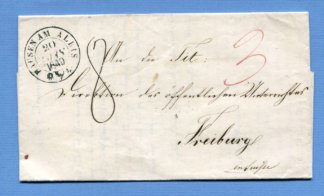 HAUSEN AM ALBIS
20
8
3
An die Tit:
Direction des öffentlichen Unterrichtes
Freiburg